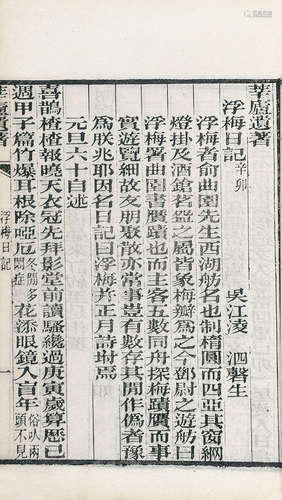 莘廬遺著
浮梅日記 辛卯
吳江淩 泗磬生
浮梅者俞曲園先生西湖舫名也制橢圓而四亞其窗網
燈掛及酒鎗茗盌之屬皆象梅瓣爲之今鄧尉之遊舫曰
浮梅與曲園書贋蹟也而主客五數同舟探梅蹟贋而事
實遊覽細故友朋聚散亦當事豈有數存其間作僞者豫
爲朕兆耶因名日記曰浮梅并正月詩坿焉
元旦六十自述
喜鵲楂楂報曉天衣冠先拜影堂前讀騷纔過庚寅歲算厯已
週甲子篇竹爆耳根除啞厄冬間多悶症花添眼鏡入盲年俗以兩頭不見
莘廬遺著
浮梅日記
一